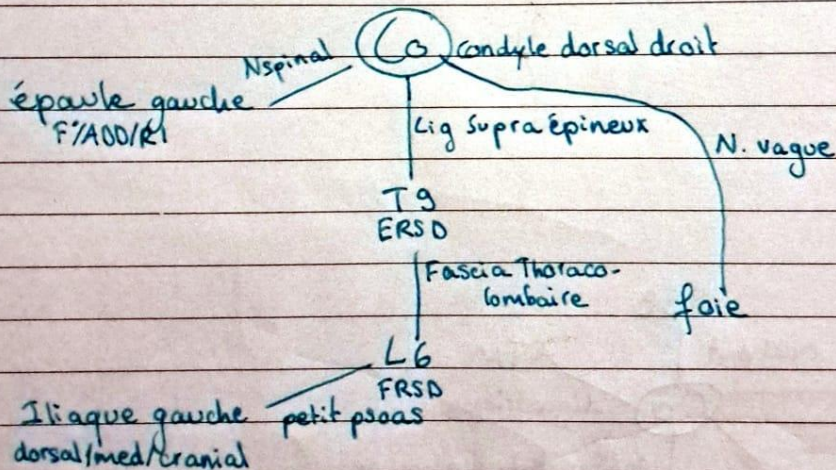 Co condyle dorsal droit
N spinal
épaule gauche
F/ADD/RI
Lig Supra épineux
N. vague
T9
ERSD
Fascia Thoraco-
lombaire
foie
L6
FRSD
Iliaque gauche
petit psoas
dorsal/med/cranial